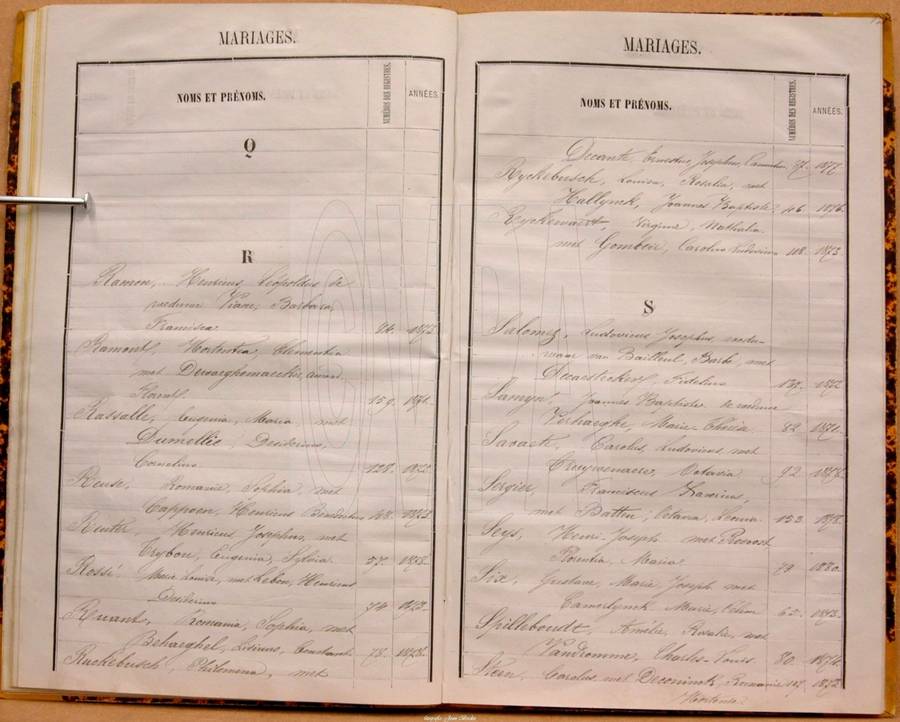 MARIAGES.
NOMS ET PRÉNOMS.
NUMÉROS DES REGISTRES.
ANNÉES.
Q
R
Ramon, Henricus, Léopoldus de
weduwe Viane, Barbara,
Francisca 24. 1872
Ramont, Hortentia, Clementia
met
Florent 159. 1871.
Rassalle, Eugenia, Maria, met
Dumellie, Desiderius,
Cornelius 128.
Reuse, Romanie, Sophia, met
Cappoen, Henricus Benedictus 148.
Reuth, Henricus Josephus, met
Trybou, Eugenia, Sylvia 57. 1878.
Rossé, Marie Louise, met Lebon, Henricus
Desiderius 74
Romania, Sophia, met
Behaeghel, Constant 78. 1878.
Ruckebusch, Philomena, met
MARIAGES.
NOMS ET PRÉNOMS.
NUMÉROS DES REGISTRES.
ANNÉES.
Decante, Ernestus, Josephus, 37.
Ryckebusch, Louisa, Rosalia, met
Hallynck, Joannes Baptiste 106. 1876.
Ryckewaert, Virginie, Nathalia
met Gombeir, Carolus Ludovicus 108. 1873
S
Salomez, Ludovicus Josephus
van Bailleul, Barbe met
Fidelius 137. 1872
Samyn, Joannes Baptiste de weduwe
Verhaeghe, Marie Theresia 82. 1871.
Savaete, Carolus, Ludovicus, met
Octavia 92
Sergier, Franciscus Xaverius,
met Batteu, Octavia, Leonia 153. 1878.
Seys, Henri-Joseph met Provost
Florentia, Maria 79 1880.
Six, Gustave, Marie, Joseph met
Camerlynck Marie, 62. 1873.
Spilleboudt, Amélie, Rosalie, met
Vandromme, Charles-Louis 80. 1874.
Steen, Carolus met Deconinck, Romanie 107. 1872
Hortense.